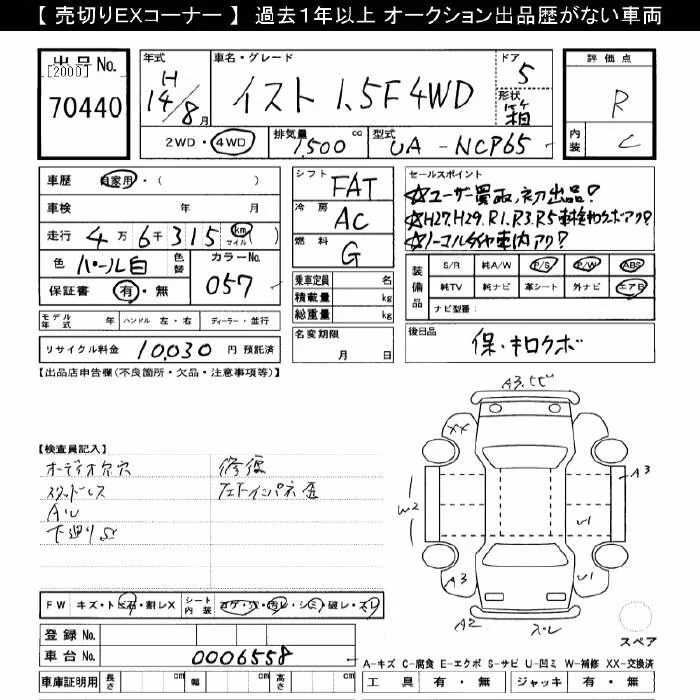 【 売切りEXコーナー 】 過去1年以上 オークション出品歴がない車両
出品No.
[2000]
70440
年式
H
14/8月
車名・グレード
イスト 1.5F 4WD
ドア
5
形状
箱
2WD・4WD
排気量 1,500 cc
型式 UA-NCP65
評価点
R
内装
C
車歴 自家用・( )
車検 年 月
走行 4万6千315 km マイル ( )
色 パール白 色替
カラーNo. 057
保証書 有・無
シフト FAT
冷房 AC
燃料 G
乗車定員 名
積載量 kg
総重量 kg
セールスポイント
☆ユーザー買取、初出品?
☆H27,H29,R1,R3,R5車検和クボアク?
☆ノーマルタイヤ車内アク?
装備品
S/R 純A/W P/S P/W ABS
純TV 純ナビ 革シート 外ナビ エアB
ナビ型番:
モデル年式 年 ハンドル 左・右 ディーラー・並行
リサイクル料金 10,030 円 預託済
名変期限
月 日
後日品
保・キロクボ
【出品店申告欄(不良箇所・欠品・注意事項等)】
【検査員記入】
オーディオ欠穴
スタッドレス
AU
下廻りS
修復
フェードインパネ歪
A3.UU
XX
A3
W2
U1
A3
U1
A2
スレ
FW キズ・トビ石・割レX
シート内装 コゲ・穴・汚レ・シミ・破レ・スレ
スペア
登録 No.
車台 No. 0006558
A-キズ C-腐食 E-エクボ S-サビ U-凹ミ W-補修 XX-交換済
車庫証明用 長さ cm 幅 cm 高さ cm
工具 有・無 ジャッキ 有・無